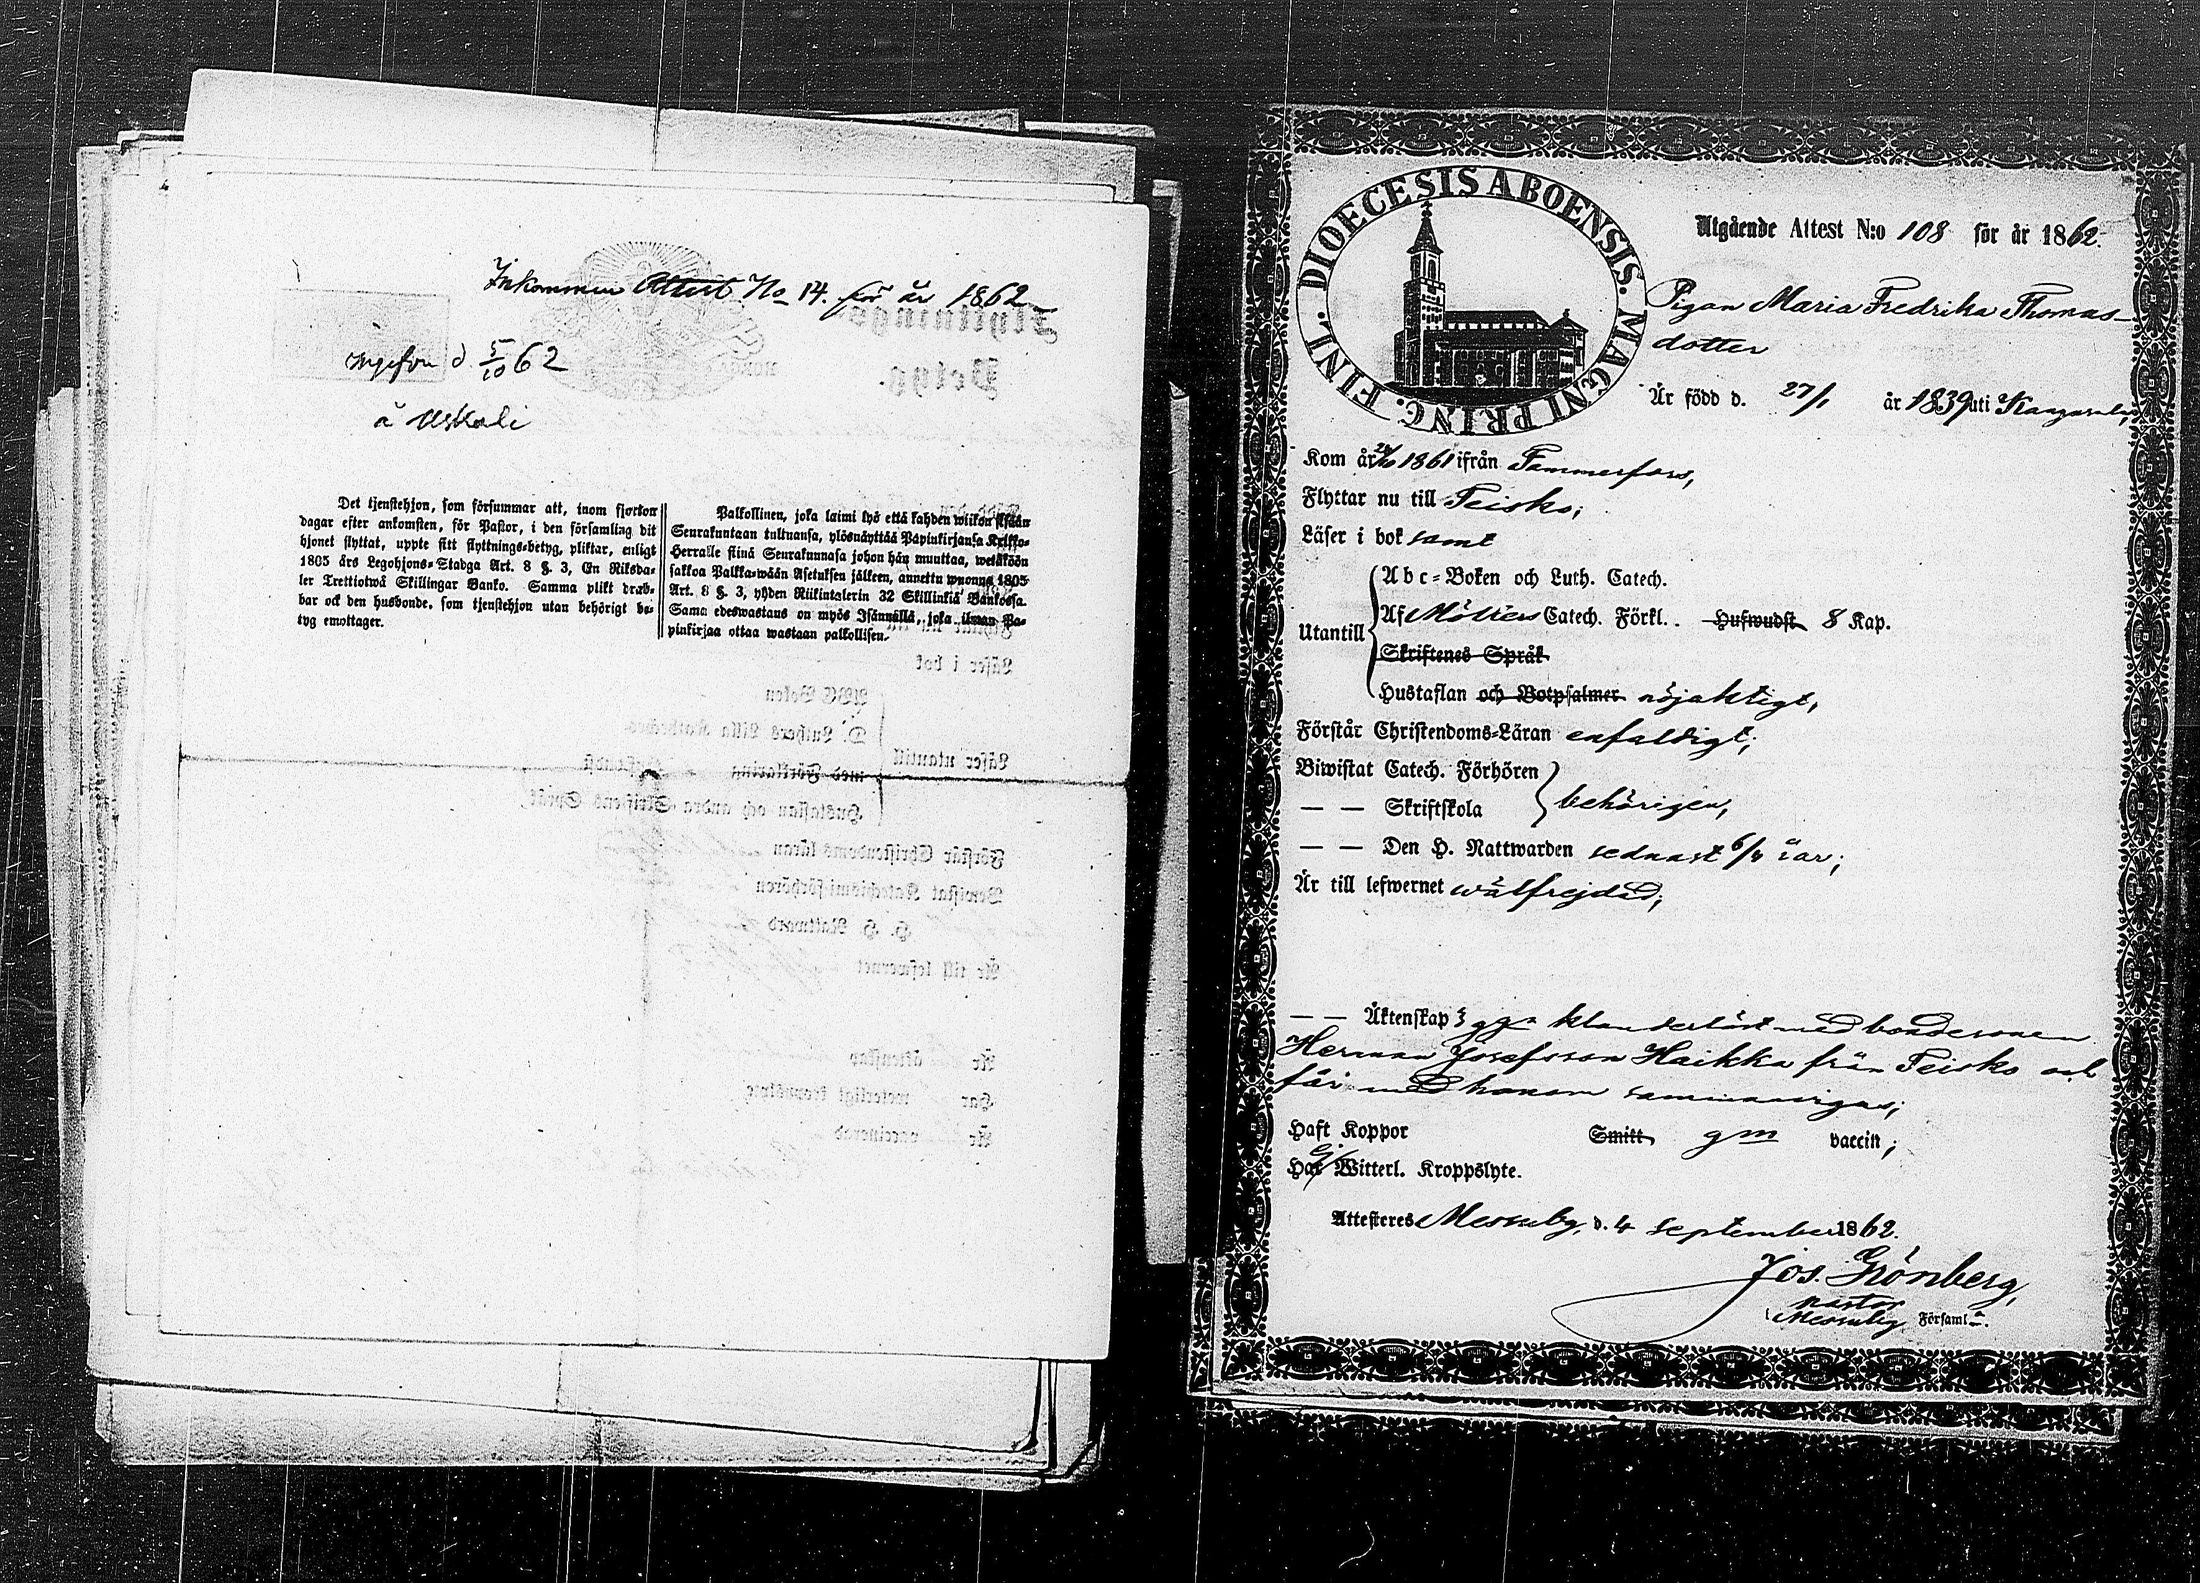 Inkommen Attest No 14. för år 1862
d. 5/10 62
å Uskali
Det tjenstehjon, som försummar att, inom fjorton
dagar efter ankomsten, för Pastor, i den församling dit
hjonet flyttat, uppte sitt flyttnings-betyg, pliktar, enligt
1805 års Legohjons-Stadga Art. 8 §. 3, En Riksda-
ler Trettiotwå Skillingar Banko. Samma plikt drab-
bar ock den husbonde, som tjenstehjon utan behörigt be-
tyg emottager.
Palkollinen, joka laimi lyö että kahden wiikon sisään
Seurakuntaan tultuansa, ylösnäyttää Papinkirjansa Kirkko-
Herralle siinä Seurakunnasa johon hän muuttaa, wetäköön
sakkoa Palkka-wään Asetuksen jälkeen, annettu wuonna 1805
Art. 8 §. 3, yhden Riikintalerin 32 Skillinkiä Bankossa.
Sama edeswastaus on myös Isännällä, joka ilman Pa-
pinkirjaa ottaa wastaan palkollisen.
Flyttnings-
Betyg.
Läser i bok
ABC Boken
D. Luthers Lilla Katheches
Läser utantill
med Förklaring
Hustaflan och andra Skriftens Språk
Förstår Christendoms läran
Bewistat Katechismi förhören
H. H. Nattward
Är till lefwernet
Är äktenskap
Har wetterligt
Är vaccinerad
DIOECESIS ABOENSIS. MAGNI PRINC. FINL.
Utgående Attest N:o 108 för år 1862.
Pigan Maria Fredrika Thomas-
dotter
Är född d. 27/1 år 1839 uti Kangasala,
Kom år 1861 ifrån Tammerfors,
Flyttar nu till Teisko;
Läser i bok samt
Utantill
Abc-Boken och Luth. Catech.
Af Möllers Catech. Förkl. Hufwudst. 8 Kap.
Skriftenes Språk
Hustaflan och Botpsalmer nöjaktigt,
Förstår Christendoms-Läran enfaldigt;
Biwistat Catech. Förhören
— — Skriftskola
behörigen,
— — Den H. Nattwarden sednast 6/4 i år;
Är till lefwernet wälfrejdad;
— — Äktenskap 3 ggr klanderlöst med bondesonen
Herman Josefsson Haikka från Teisko och
får med honom sammanvigas;
Haft Koppor Smitt gm vaccin;
Har Ej Witterl. Kroppslyte.
Attesteres Messuby, d. 4 september 1862.
Jos. Grönberg,
pastor
i Messuby Församl.